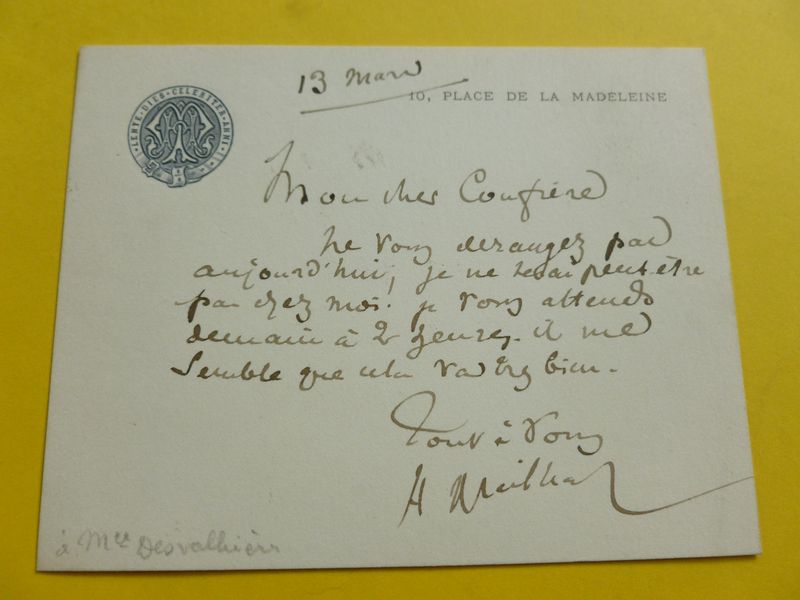 13 Mars
10, PLACE DE LA MADELEINE
LENTE · DIES · CELERITER · ANNI
Mon cher Confrère
Ne vous derangez pas
aujourd'hui, je ne serai peut-être
pas chez moi. je vous attends
demain à 2 heures. il me
semble que cela va très bien.
Tout à vous
H Meilhac
à Mr Desvallières